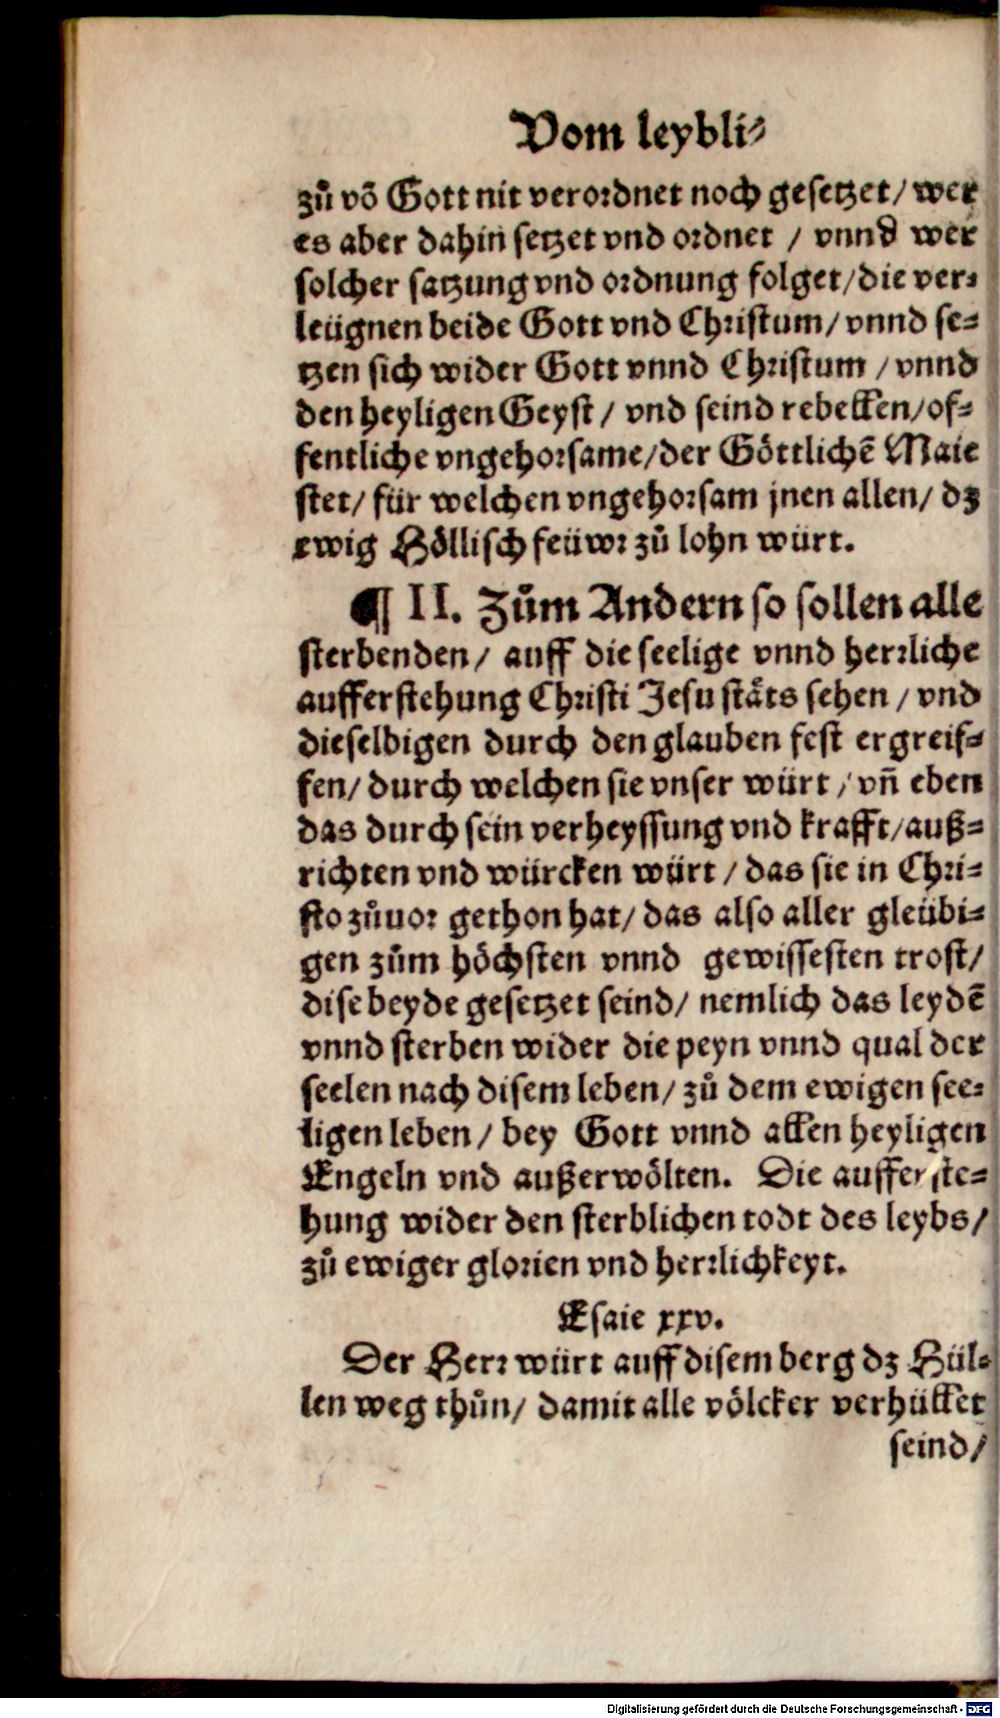 Vom leybli⸗
zů võ Gott nit verordnet noch gesetzet/ wer
es aber dahin setzet vnd ordnet / vnnd wer
solcher satzung vnd ordnung folget/die ver⸗
leügnen beide Gott vnd Christum/ vnnd se⸗
tzen sich wider Gott vnnd Christum / vnnd
den heyligen Geyst / vnd seind rebellen/of⸗
fentliche vngehorsame/der Göttlichẽ Maie
stet/ für welchen vngehorsam jnen allen/ dz
ewig Höllisch feüwr zů lohn würt.
¶ II. Zům Andern so sollen alle
sterbenden/ auff die seelige vnnd herrliche
aufferstehung Christi Jesu stäts sehen / vnd
dieselbigen durch den glauben fest ergreif⸗
fen/ durch welchen sie vnser würt / vñ eben
das durch sein verheyssung vnd krafft/auß⸗
richten vnd würcken würt / das sie in Chri⸗
sto zůuor gethon hat/ das also aller gleübi⸗
gen zům höchsten vnnd gewissesten trost/
dise beyde gesetzet seind/ nemlich das leydẽ
vnnd sterben wider die peyn vnnd qual der
seelen nach disem leben/ zů dem ewigen see⸗
ligen leben/ bey Gott vnnd allen heyligen
Engeln vnd außerwölten. Die aufferste⸗
hung wider den sterblichen todt des leybs/
zů ewiger glorien vnd herrlichkeyt.
Esaie xxv.
Der Herr würt auff disem berg dz Hül⸗
len weg thůn/ damit alle völcker verhüllet
seind/
Digitalisierung gefördert durch die Deutsche Forschungsgemeinschaft - DFG